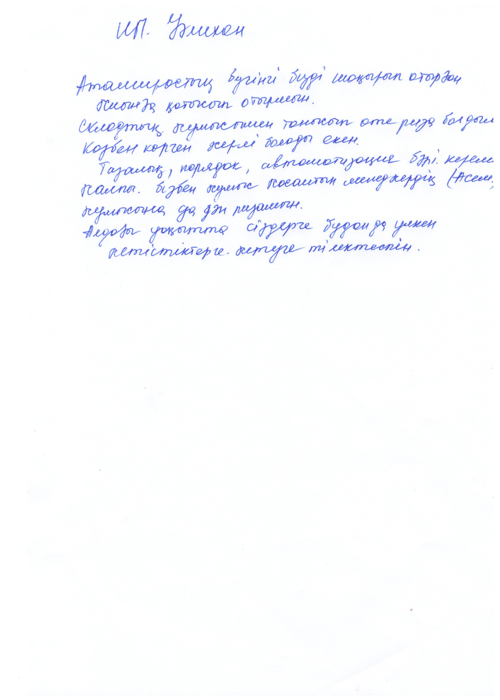 ИП. Әлихан
Атамиростың бүгінгі бізді шақырып отырған
жиынға қатысып отырмын.
Складтың жұмысымен танысып өте риза болдым
Көзбен көрген жерлі болады екен.
Тазалық, порядок, автоматизация бәрі керем
жалпы. Бізбен жұмыс жасайтын менеджердің (Асем,
жұмысына да дән ризамын.
Алдағы уақытта сіздерге бұдан да үлкен
жетістіктерге жетуге тілектеспін.